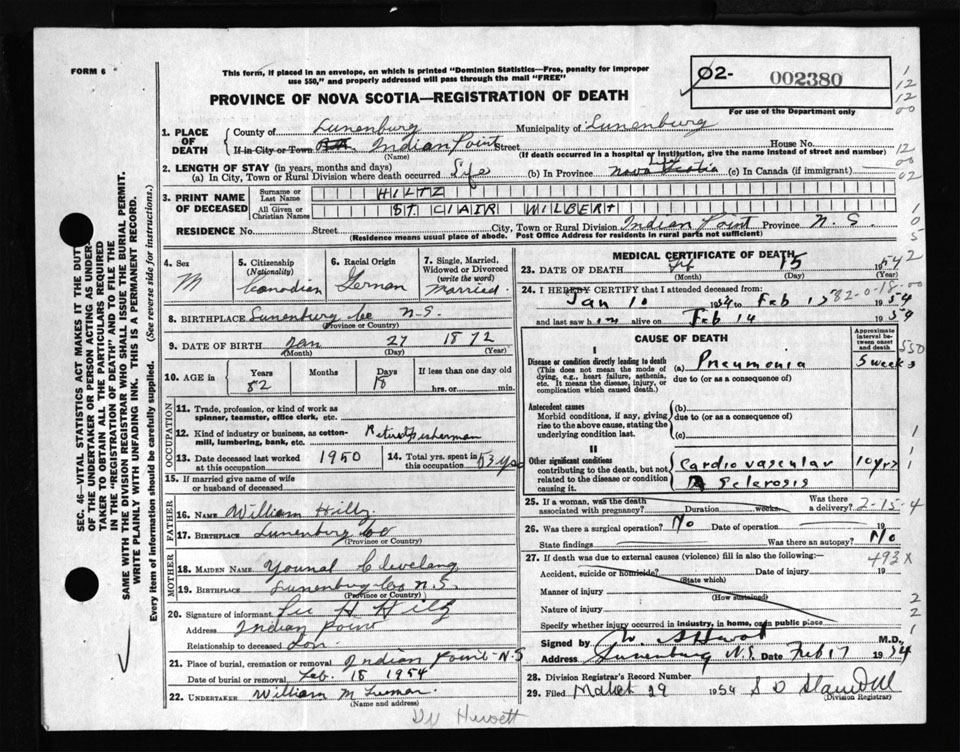 FORM 6
This form, if placed in an envelope, on which is printed "Dominion Statistics—Free, penalty for improper
use $50," and properly addressed will pass through the mail "FREE"
02- 002380
For use of the Department only
PROVINCE OF NOVA SCOTIA—REGISTRATION OF DEATH
1. PLACE OF DEATH
County of Lunenburg Municipality of Lunenburg
If in City or Town Indian Point Street House No.
(Name) (If death occurred in a hospital or institution, give the name instead of street and number)
2. LENGTH OF STAY (in years, months and days)
(a) In City, Town or Rural Division where death occurred Life (b) In Province Nova Scotia (c) In Canada (if immigrant)
3. PRINT NAME OF DECEASED
Surname or Last Name HILTZ
All Given or Christian Names ST. CLAIR WILBERT
RESIDENCE No. Street City, Town or Rural Division Indian Point Province N. S.
(Residence means usual place of abode. Post Office Address for residents in rural parts not sufficient)
4. Sex
M
5. Citizenship
(Nationality)
Canadian
6. Racial Origin
German
7. Single, Married, Widowed or Divorced
(write the word)
Married
8. BIRTHPLACE Lunenburg Co N.S.
(Province or Country)
9. DATE OF BIRTH Jan 27 1872
(Month) (Day) (Year)
10. AGE in Years Months Days If less than one day old
82 18 hrs. or min.
OCCUPATION
11. Trade, profession, or kind of work as
spinner, teamster, office clerk, etc.
12. Kind of industry or business, as cotton-
mill, lumbering, bank, etc. Retired Fisherman
13. Date deceased last worked
at this occupation 1950
14. Total yrs. spent in
this occupation 53 yrs
15. If married give name of wife
or husband of deceased
FATHER
16. NAME William Hiltz
17. BIRTHPLACE Lunenburg Co
(Province or Country)
MOTHER
18. MAIDEN NAME Cleveland
19. BIRTHPLACE Lunenburg Co N.S.
(Province or Country)
20. Signature of informant H Hiltz
Address Indian Point
Relationship to deceased Son
21. Place of burial, cremation or removal Indian Point N.S
Date of burial or removal Feb. 18 1954
22. UNDERTAKER William M
(Name and address)
MEDICAL CERTIFICATE OF DEATH
23. DATE OF DEATH 15 1954
(Month) (Day) (Year)
24. I HEREBY CERTIFY that I attended deceased from:
Jan 10 1954 to Feb 15 1954
and last saw him alive on Feb 14 1954
CAUSE OF DEATH
Approximate interval between onset and death
I
Disease or condition directly leading to death
(This does not mean the mode of
dying, e.g., heart failure, asthenia,
etc. It means the disease, injury, or
complication which caused death.)
(a) Pneumonia 5 weeks
due to (or as a consequence of)
Antecedent causes
Morbid conditions, if any, giving
rise to the above cause, stating the
underlying condition last.
(b)
due to (or as a consequence of)
(c)
II
Other significant conditions
contributing to the death, but not
related to the disease or condition
causing it.
Cardiovascular 10 yrs
Sclerosis
25. If a woman, was the death
associated with pregnancy? Duration weeks Was there
a delivery?
2-15-4
26. Was there a surgical operation? No Date of operation 19
State findings Was there an autopsy? No
27. If death was due to external causes (violence) fill in also the following:—
493X
Accident, suicide or homicide? Date of injury 19
(State which)
Manner of injury
(How sustained)
Nature of injury
Specify whether injury occurred in industry, in home, or in public place
Signed by M.D.
Address Lunenburg N.S. Date Feb 17 1954
28. Division Registrar's Record Number
29. Filed March 29 1954
(Division Registrar)
Dr Hewett
SEC. 46—VITAL STATISTICS ACT MAKES IT THE DUTY
OF THE UNDERTAKER OR PERSON ACTING AS UNDER-
TAKER TO OBTAIN ALL THE PARTICULARS REQUIRED
IN THE "REGISTRATION OF DEATH" AND TO FILE THE
SAME WITH THE DIVISION REGISTRAR WHO SHALL ISSUE THE BURIAL PERMIT.
WRITE PLAINLY WITH UNFADING INK. THIS IS A PERMANENT RECORD.
Every item of information should be carefully supplied. (See reverse side for instructions.)